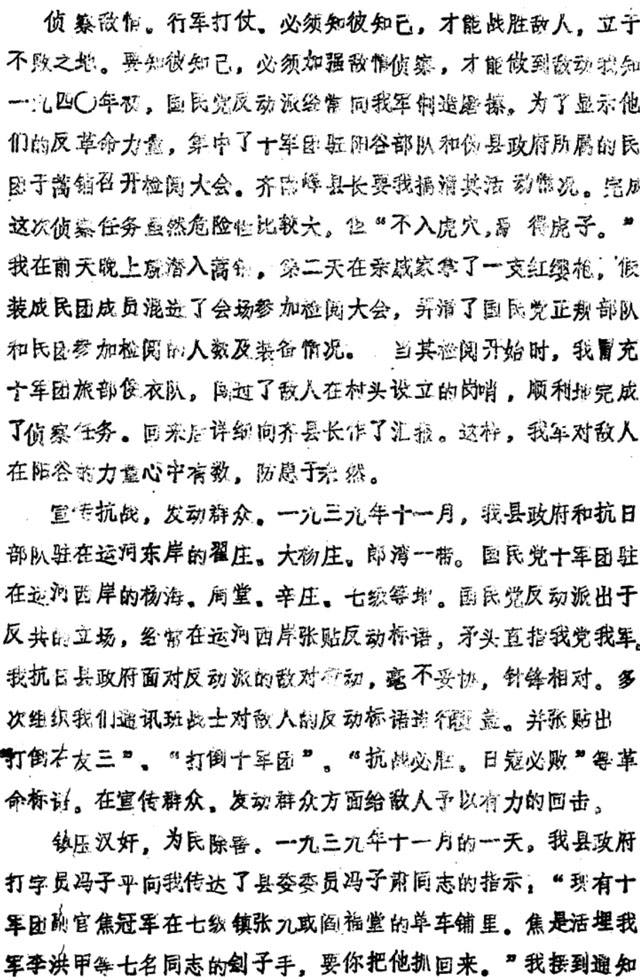 侦察敌情。行军打仗。必须知彼知己，才能战胜敌人，立于
不败之地。要知彼知己，必须加强敌情侦察，才能做到敌动我知
一九四〇年初，国民党反动派经常向我军制造磨擦。为了显示他
们的反革命力量，集中了十军团驻阳谷部队和伪县政府所属的民
团于蒿铺召开检阅大会。齐 峰县长要我搞清其活动情况。完成
这次侦察任务虽然危险性比较大，但“不入虎穴，焉得虎子。”
我在前天晚上就潜入蒿铺，第二天在亲戚家拿了一支红缨枪，假
装成民团成员混进了会场参加检阅大会，弄清了国民党正规部队
和民团参加检阅的人数及装备情况。 当其检阅开始时，我冒充
十军团旅部便衣队，闯过了敌人在村头设立的岗哨，顺利地完成
了侦察任务。回来后详细向齐县长作了汇报。这样，我军对敌人
在阳谷的力量心中有数，防患于未然。
宣传抗战，发动群众。一九三九年十一月，我县政府和抗日
部队驻在运河东岸的翟庄、大杨庄、郎湾一带。国民党十军团驻
在运河西岸的杨海、周堂、辛庄、七级等地。国民党反动派出于
反共的立场，经常在运河西岸张贴反动标语，矛头直指我党我军。
我抗日县政府面对反动派的敌对行动，毫不妥协，针锋相对。多
次组织我们通讯班战士对敌人的反动标语进行覆盖。并张贴出
“打倒石友三”、“打倒十军团”、“抗战必胜。日寇必败”等革
命标语。在宣传群众、发动群众方面给敌人予以有力的回击。
镇压汉奸，为民除害。一九三九年十一月的一天。我县政府
打字员冯子平向我传达了县委委员冯子肃同志的指示：“现有十
军团副官焦冠军在七级镇张九或阎福堂的单车铺里。焦是活埋我
军李洪甲等七名同志的刽子手，要你把他抓回来。”我接到通知